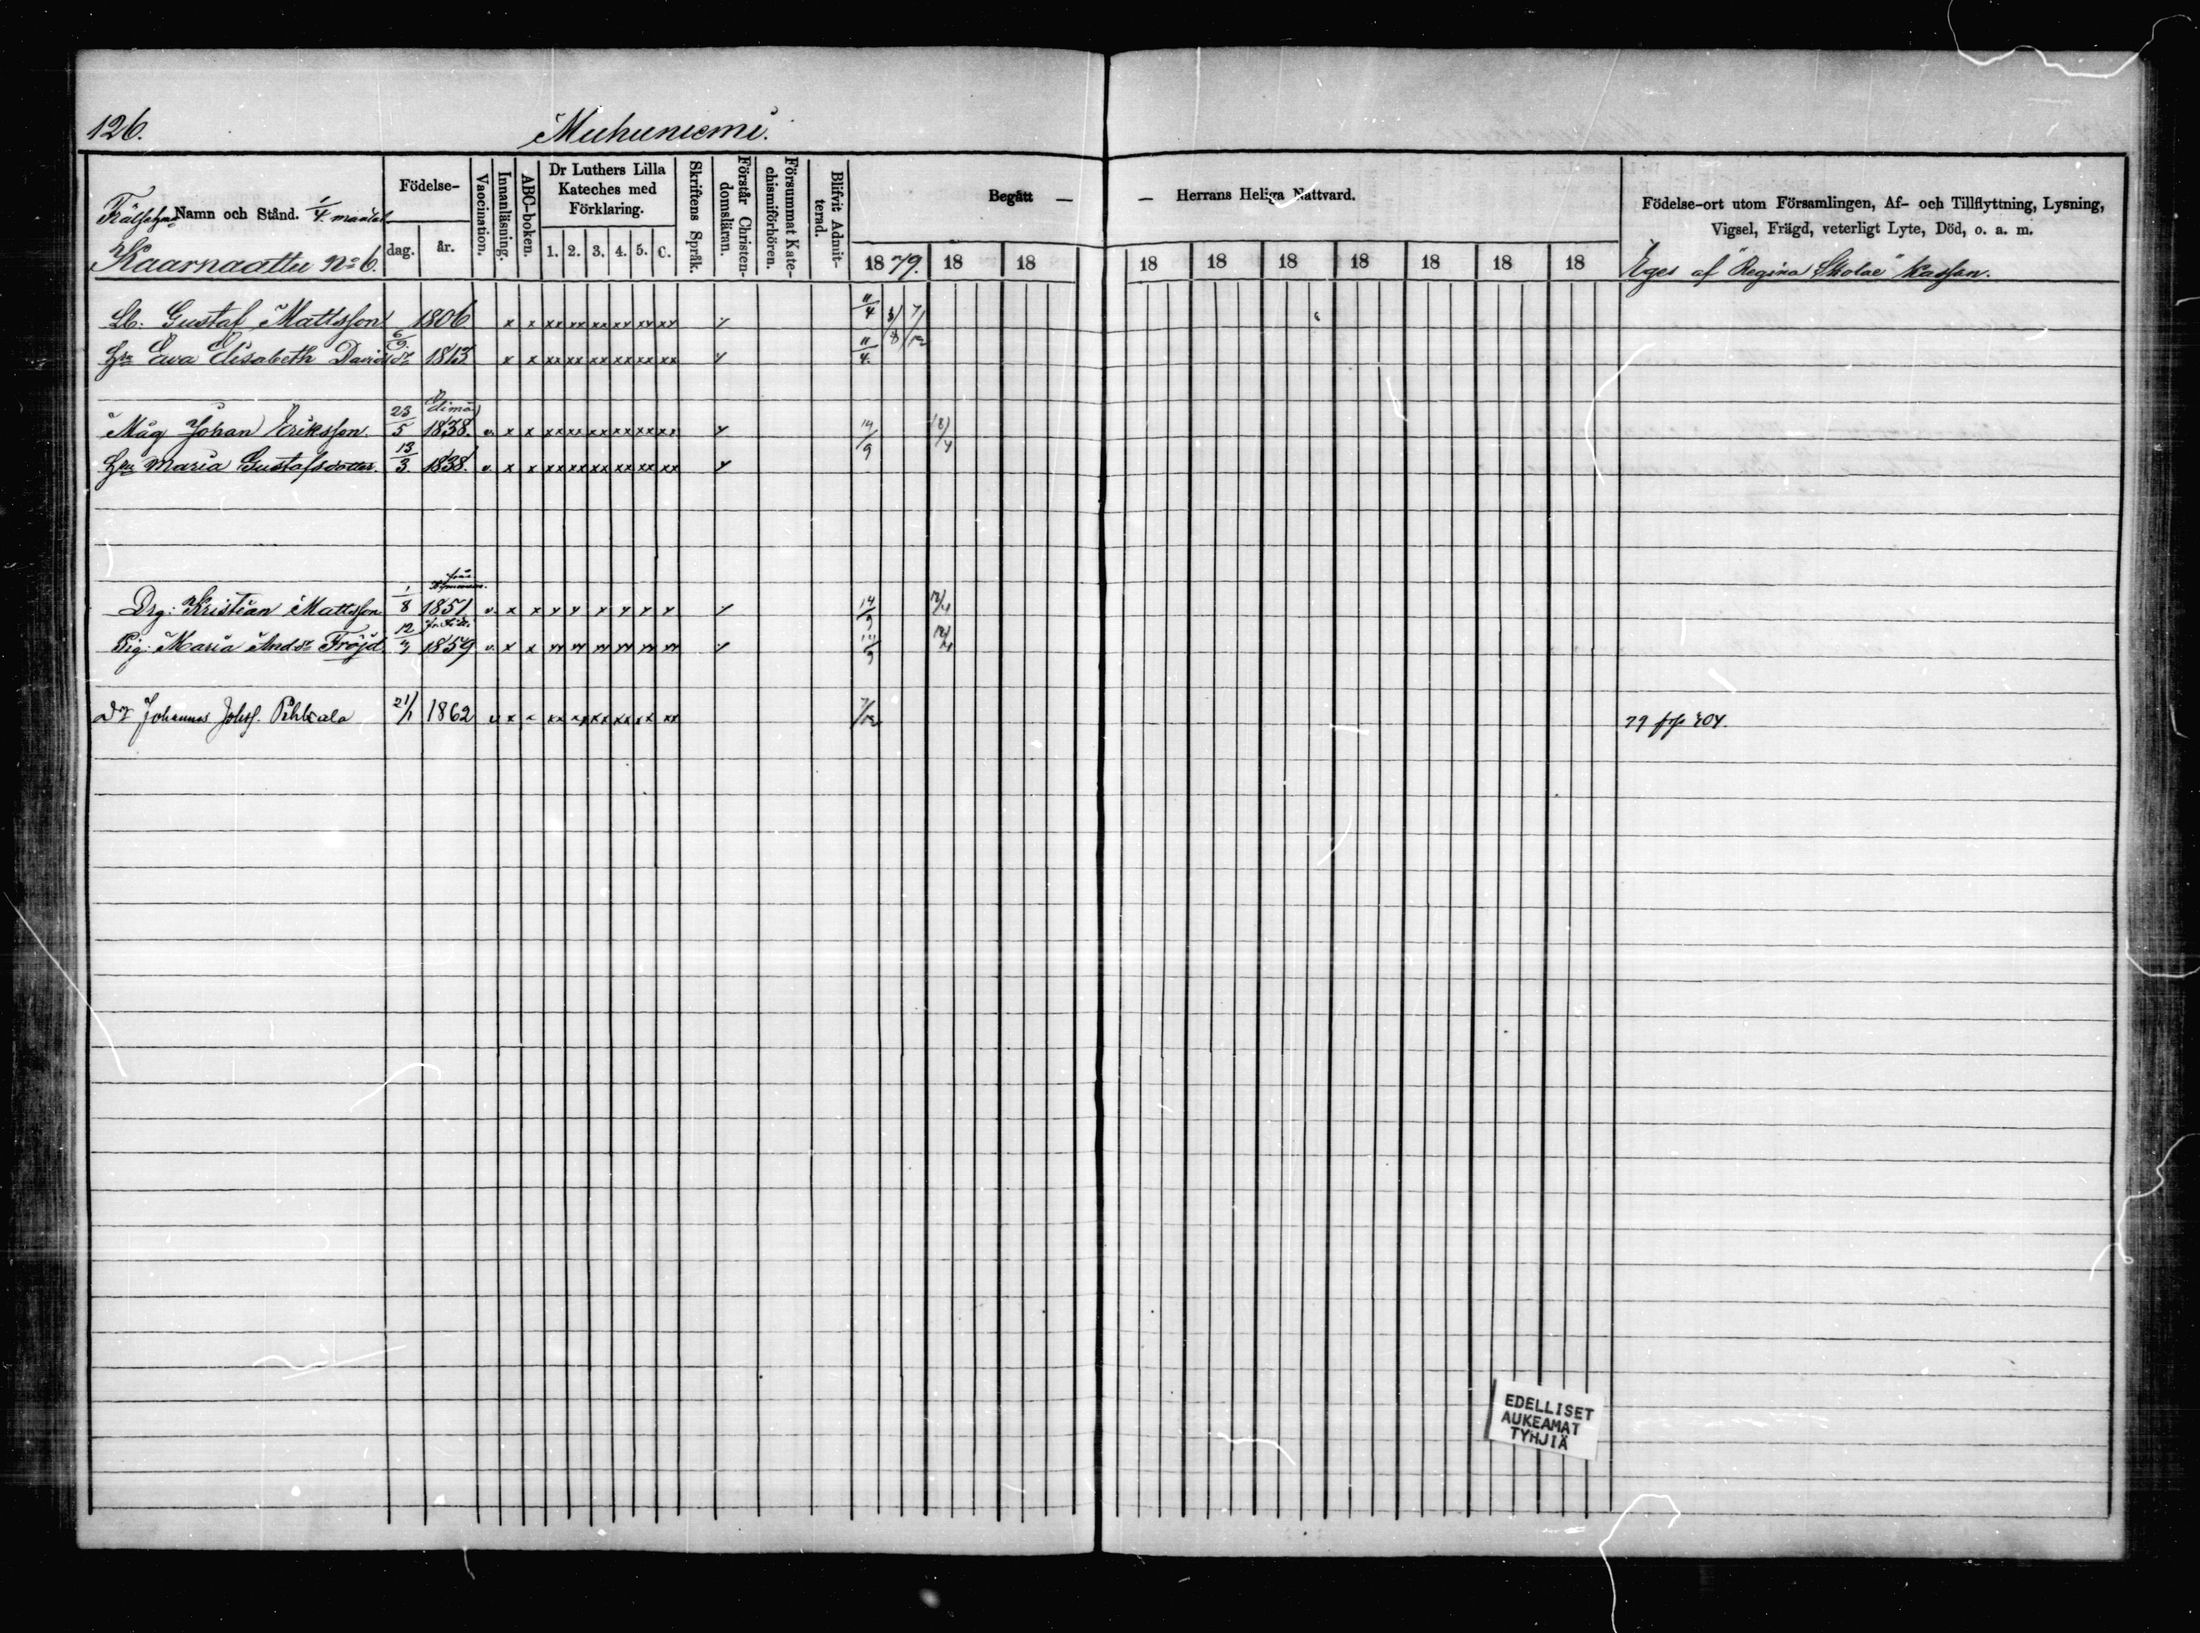 126.
Muhuniemi.
Namn och Stånd. 1/4 mantal
Kaarnaattu No 6.
Födelse-
dag. år.
Vaccination.
Innanläsning.
ABC-boken.
Dr Luthers Lilla
Kateches med
Förklaring.
1. 2. 3. 4. 5. C.
Skriftens Språk.
Förstår Christen-
domsläran.
Försummat Kate-
chismiförhören.
Blifvit Admit-
terad.
Begått — — Herrans Heliga Nattvard.
1879. 18 18 18 18 18 18 18 18 18
Födelse-ort utom Församlingen, Af- och Tillflyttning, Lysning,
Vigsel, Frägd, veterligt Lyte, Död, o. a. m.
Eges af "Regina Skolae" Kassan.
Lb: Gustaf Mattsson 1806 x x xx xx xx xx xx xx y 11/4 7/12
Hu Eva Elisabeth Davidsdr 1813 x x xx xx xx xx xx xx y 11/4
Måg Johan Eriksson 23/5 1838. v. x x xx xx xx xx xx xx y 14/9
Hu Maria Gustafsdotter 13/3 1838. v x x xx xx xx xx xx xx y
Drg: Kristian Mattsson 1/8 1851 v. x x y y y y y y y 14/9
Pig: Maria Andsdr Fröjd 1859 v. x x y
Johannes Johss. Pihkala 21/1 1862 v x x xx xx xx xx xx xx 7/12 79 404.
EDELLISET
AUKEAMAT
TYHJIÄ